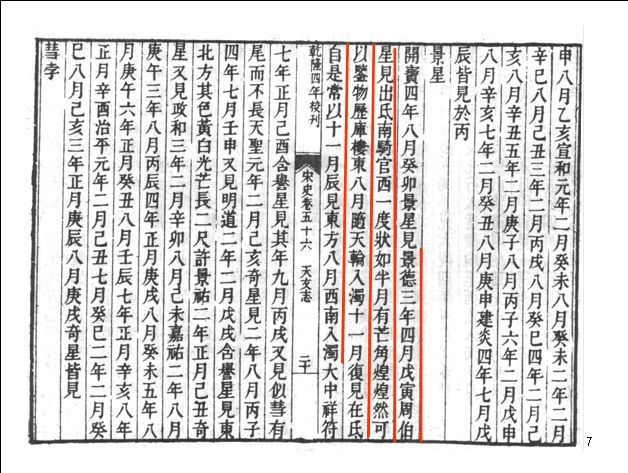 申八月乙亥宣和元年二月癸未八月癸未二年二月
辛巳八月己丑三年二月丙戌八月癸巳四年二月己
亥八月辛丑五年二月庚子八月丙子六年二月戊申
八月辛亥七年二月癸丑八月庚申建炎四年七月戊
辰皆見於丙
景星
開寶四年八月癸卯景星見景德三年四月戊寅周伯
星見出氐南騎官西一度狀如半月有芒角煌煌然可
以鑒物歷庫樓東八月隨天輪入濁十一月復見在氐
自是常以十一月辰見東方八月西南入濁大中祥符
乾隆四年校刊
宋史卷五十六 天文志
二十
七年正月己酉含譽星見其年九月丙戌又見似彗有
尾而不長天聖元年二月己亥奇星見二年八月丙子
四年七月壬申又見明道二年二月戊戌含譽星見東
北方其色黃白光芒長二尺許景祐二年正月己丑奇
星又見政和三年二月辛卯八月己未嘉祐二年八月
庚午三年八月丙辰四年正月庚戌八月癸未五年八
月庚午六年正月癸丑八月壬辰七年正月辛亥八年
正月辛酉治平元年二月己丑七月癸巳二年二月癸
巳八月己亥三年正月庚辰八月庚戌奇星皆見
彗孛
7